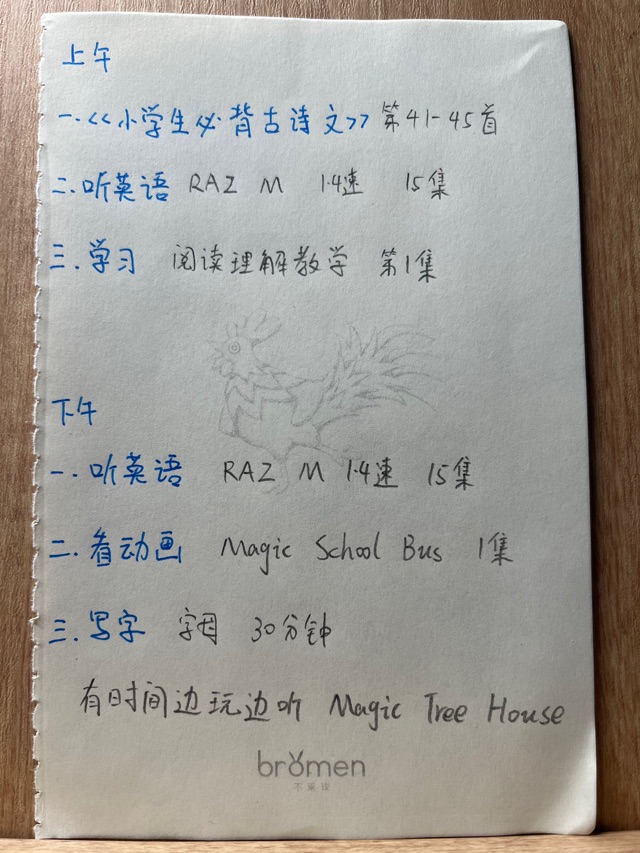 上午
一.<<小学生必背古诗文>> 第41-45首
二.听英语 RAZ M 1.4速 15集
三.学习 阅读理解教学 第1集
下午
一.听英语 RAZ M 1.4速 15集
二.看动画 Magic School Bus 1集
三.写字 字母 30分钟
有时间边玩边听 Magic Tree House
bromen
不莱玫